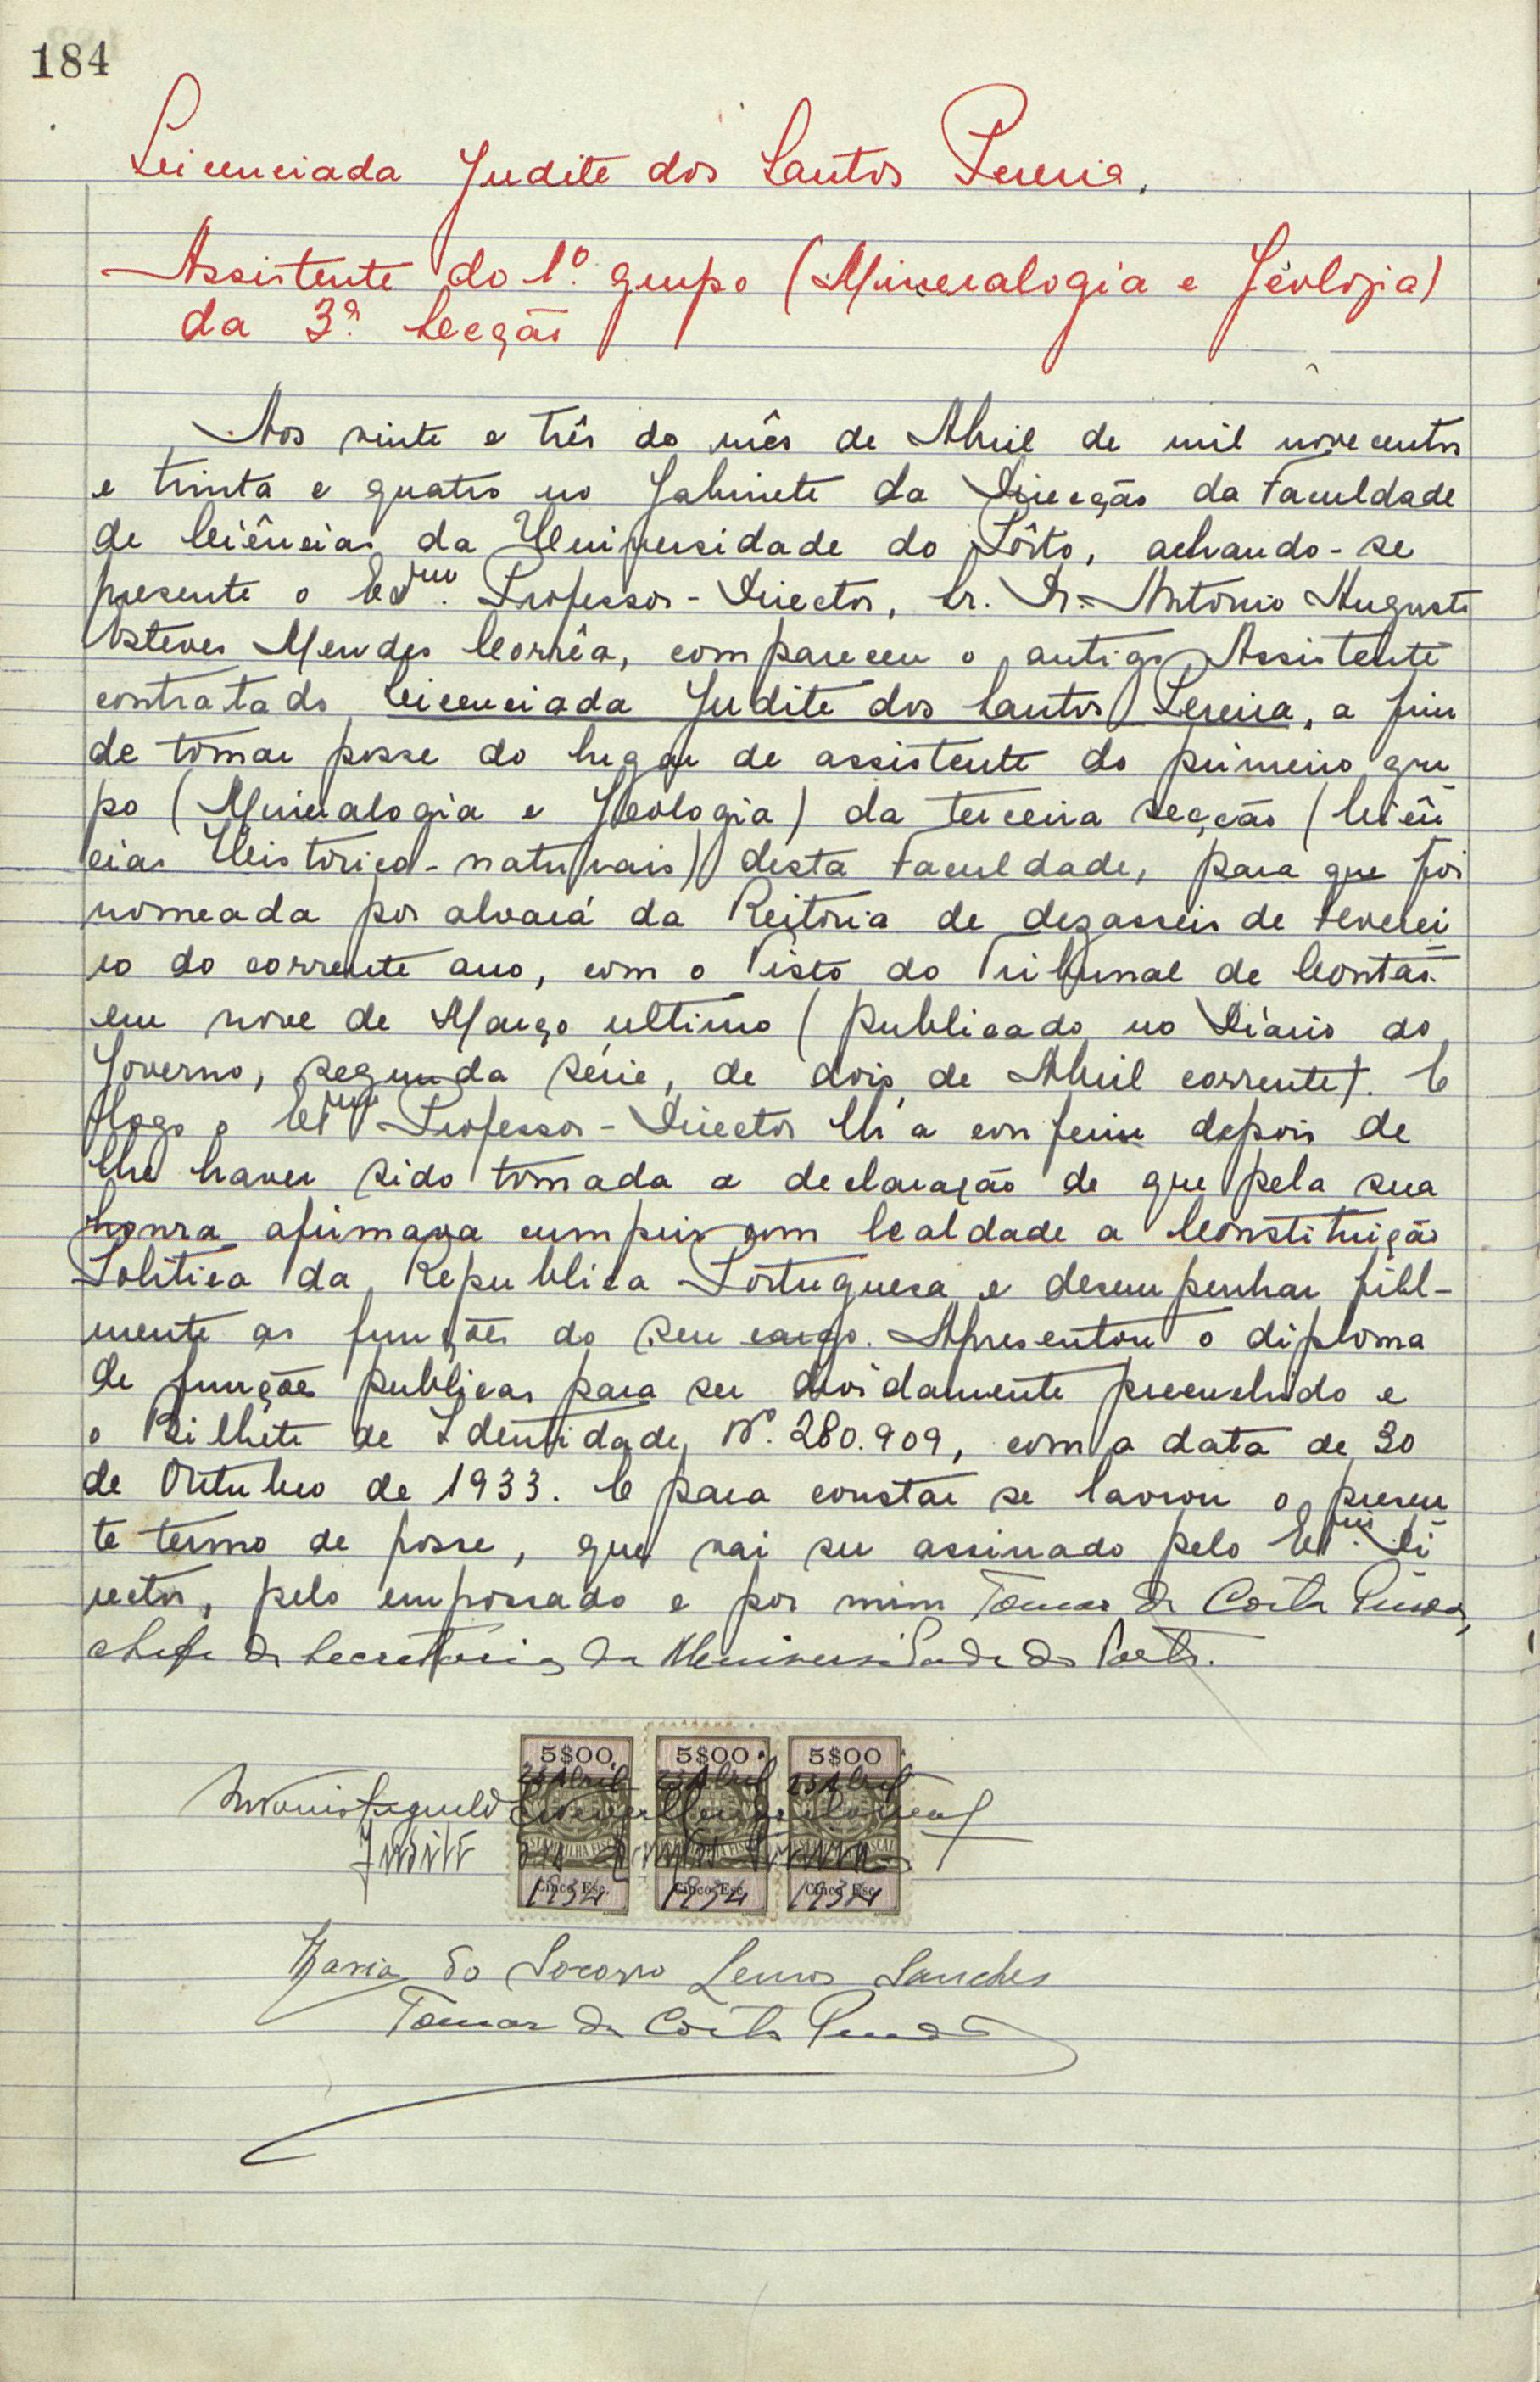 184
Licenciada Judite dos Santos Pereira.
Assistente do 1º. grupo (Mineralogia e Geologia)
da 3ª. Secção
Aos vinte e três do mês de Abril de mil novecentos
e trinta e quatro no Gabinete da Direcção da Faculdade
de Ciências da Universidade do Pôrto, achando-se
presente o Exmo. Professor-Director, Sr. Dr. António Augusto
Esteves Mendes Corrêa, compareceu o antigo Assistente
contratado Licenciada Judite dos Santos Pereira, a fim
de tomar posse do lugar de assistente do primeiro gru
po (Mineralogia e Geologia) da terceira secção (Ciên
cias Historico-naturais) desta Faculdade, para que foi
nomeada por alvará da Reitoria de dezasseis de Feverei
ro do corrente ano, com o Visto do Tribunal de Contas
em nove de Março ultimo (publicado no Diário do
Governo, segunda série, de dois de Abril corrente). E
logo o Exmo Professor-Director lh'a conferiu depois de
lhe haver sido tomada a declaração de que pela sua
honra afirmava cumprir com lealdade a Constituição
Politica da Republica Portuguesa e desempenhar fiel-
mente as funções do seu cargo. Apresentou o diploma
de funções publicas para ser devidamente preenchido e
o Bilhete de Identidade Nº. 280.909, com a data de 30
de Outubro de 1933. E para constar se lavrou o presen
te termo de posse, que vai ser assinado pelo Exmo. Di
rector, pelo empossado e por mim Tomaz da Costa
chefe da Secretaria da Universidade do Porto.
5$00 5$00 5$00
23 Abril 23 Abril 23 Abril
António Augusto Esteves Mendes Corrêa
Judite dos Santos Pereira
Cinco Esc. Cinco Esc. Cinco Esc.
1934 1934 1934
Maria do Socorro Lemos Sanches
Tomaz da Costa